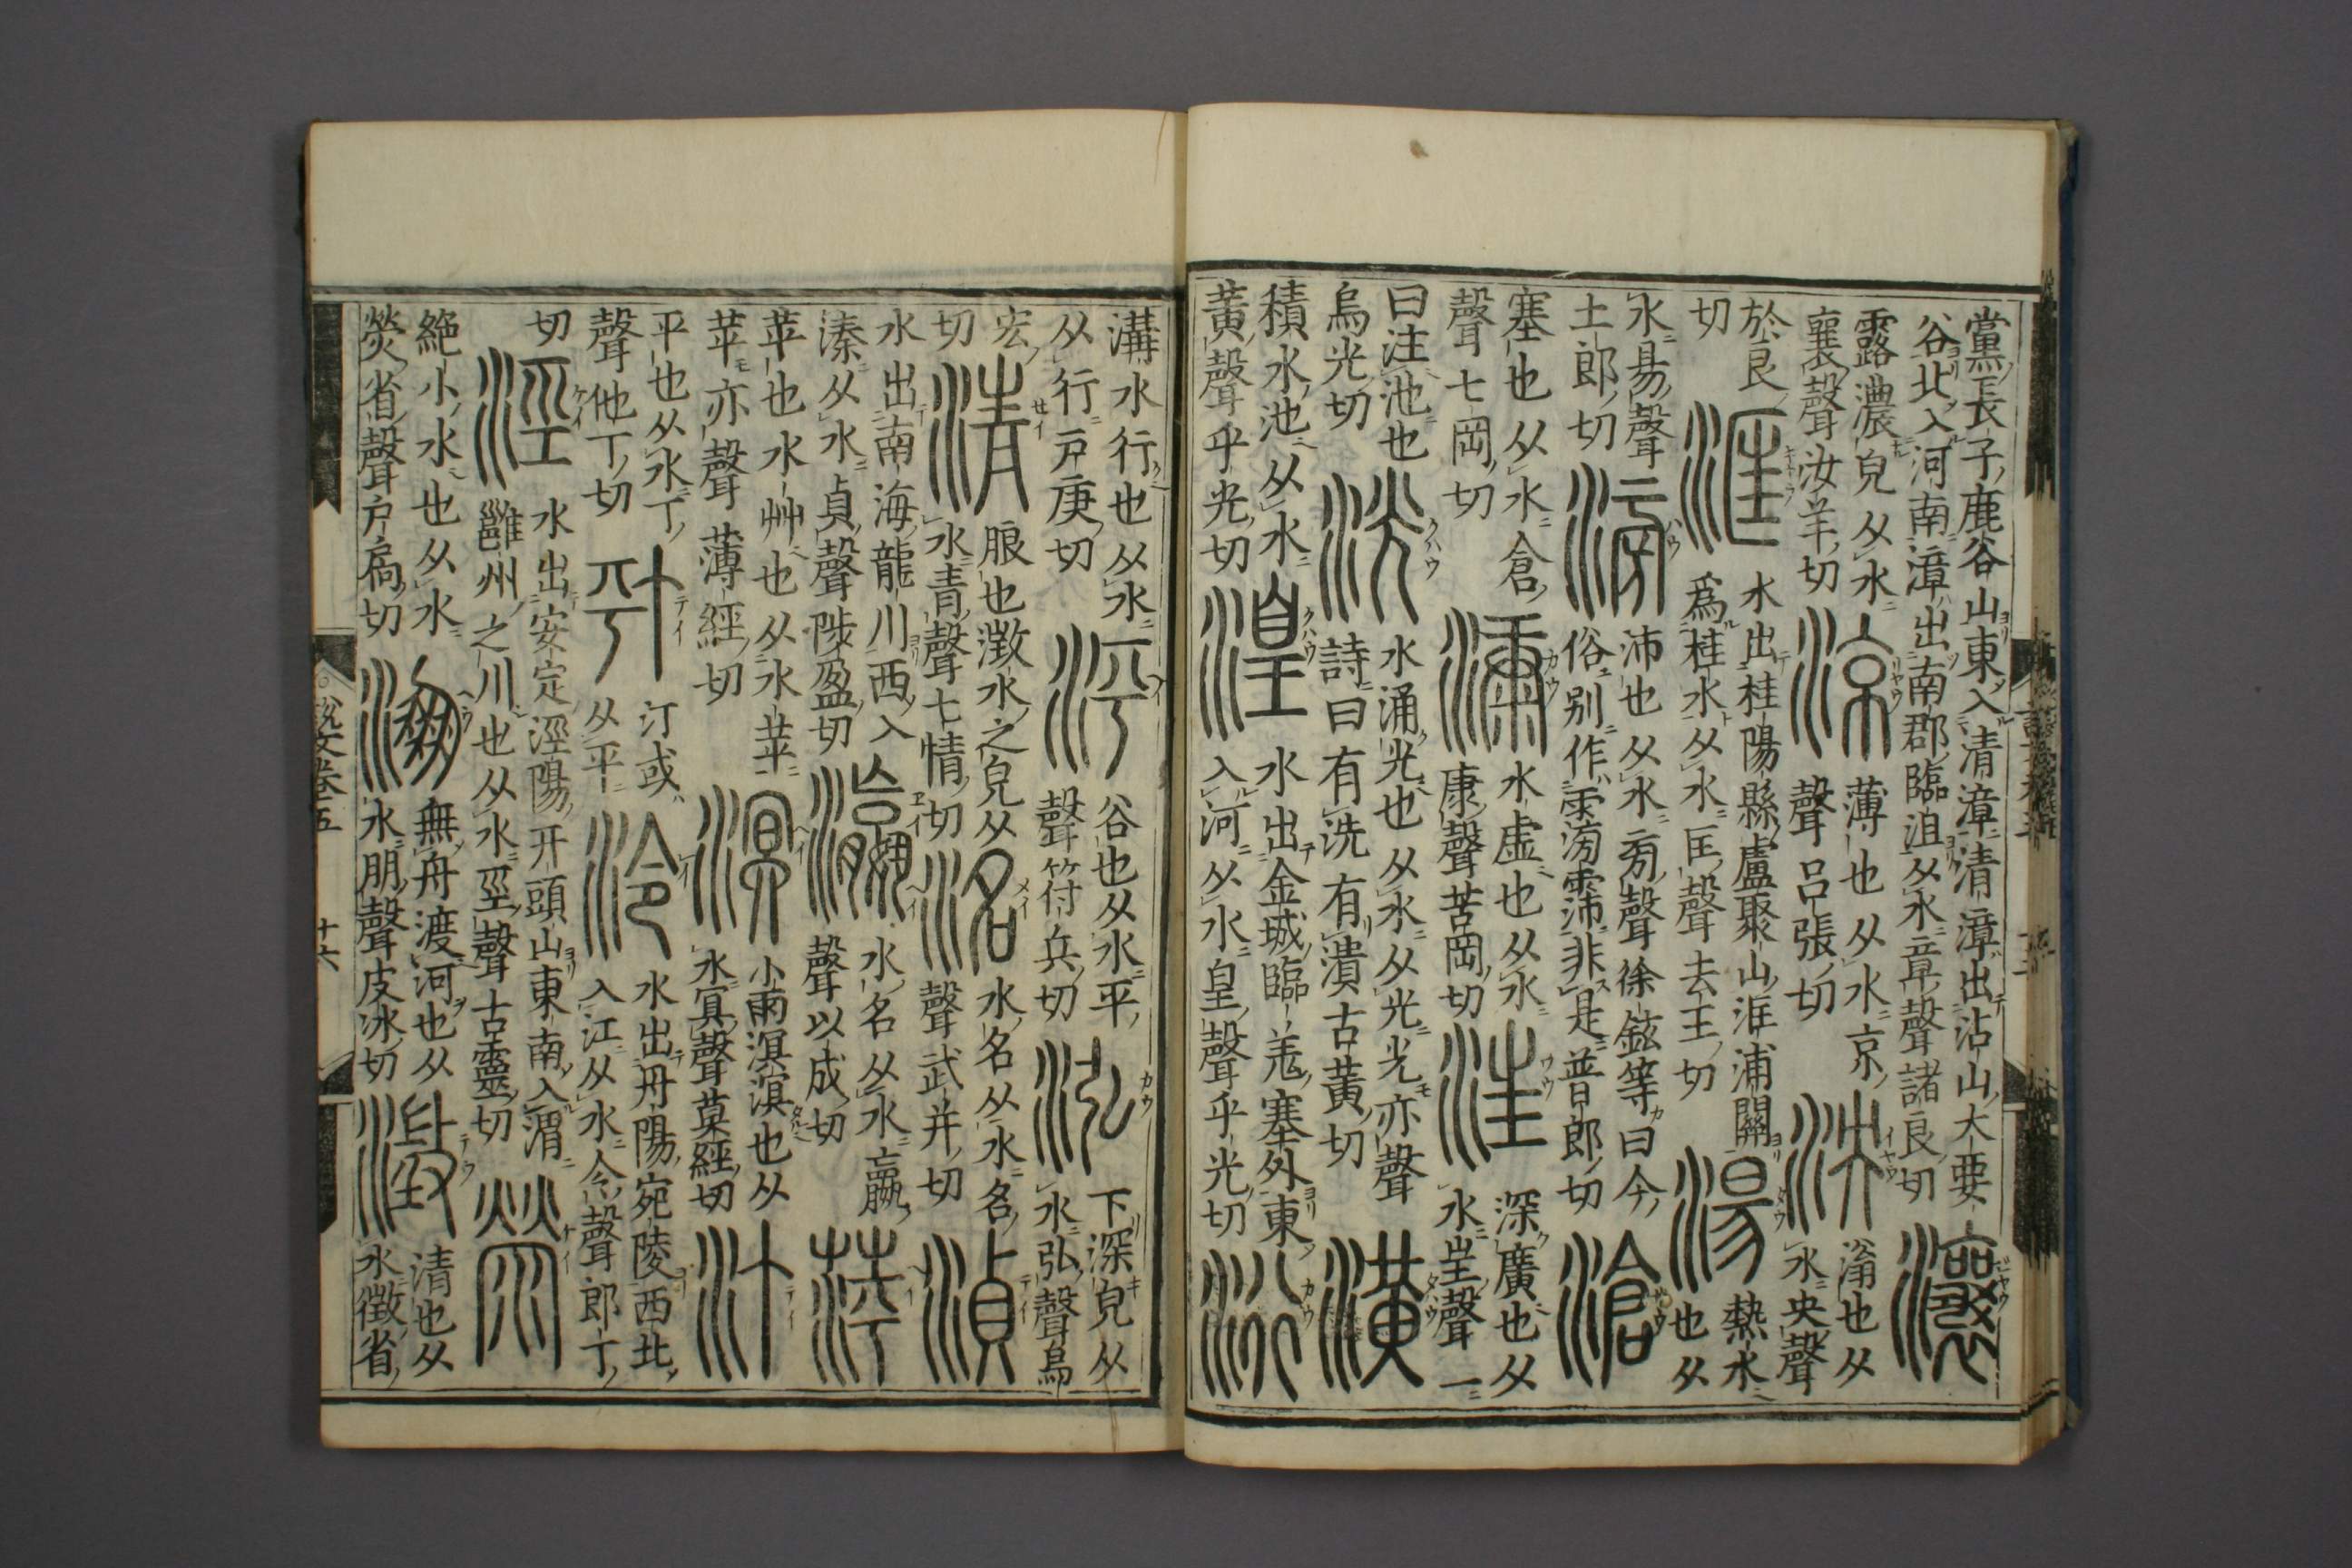 黨長子鹿谷山東入清漳清漳出沾山大要
谷北入河南漳出南郡臨沮从水章聲諸良切
瀼
露濃皃从水
襄聲汝羊切
涼
薄也从水京
聲呂張切
泱
滃也从
水央聲
於良
切
洭
水出桂陽縣盧聚山洭浦關
爲桂水从水匡聲去王切
湯
熱水
也从
水昜聲
土郎切
滂
沛也从水㫄聲徐鉉等曰今
俗别作霶霈非是普郎切
滄
塞也从水倉
聲七岡切
漮
水虛也从水
康聲苦岡切
汪
深廣也从
水㞷聲一
曰注池也
烏光切
洸
水涌光也从水从光光亦聲
詩曰有洸有潰古黃切
潢
積水池从水
黃聲乎光切
湟
水出金城臨羌塞外東
入河从水皇聲乎光切
洐
溝水行也从水
从行戸庚切
泙
谷也从水平
聲符兵切
泓
下深皃从
水弘聲烏
宏
切
清
朖也澂水之皃从
水青聲七情切
洺
水名从水名
聲武并切
湞
水出南海龍川西入
溱从水貞聲陟盈切
瀛
水名从水嬴
聲以成切
萍
苹也水艸也从水苹
苹亦聲薄經切
溟
小雨溟溟也从
水冥聲莫經切
汀
平也从水丁
聲他丁切
汀或
从平
泠
水出丹陽宛陵西北
入江从水令聲郎丁
切
涇
水出安定涇陽幵頭山東南入渭
雝州之川也从水巠聲古靈切
滎
絶小水也从水
熒省聲戶扃切
淜
無舟渡河也从
水朋聲皮冰切
澂
清也从
水徵省
說文卷五
十六